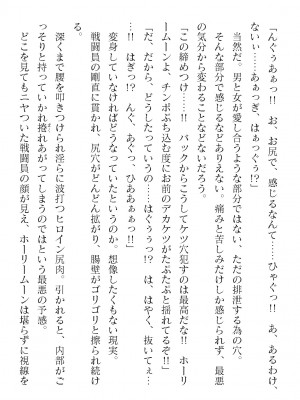 「んぐぅあぁっ!! お、お尻で、感じるなんて……ひゃぐっ!! あ、あるわけ、
ないぃ……あぁっぎ、はぁっぐぅ?」
当然だ。男と女が愛し合うような部分ではない、ただの排泄する為の穴。
そんな部分で感じるなどありえない。痛みと苦しみだけしか感じられず、最悪
の気分から変わることなどないだろう。
「この締めつけっ!! バックからこうしてケツ穴犯すのは最高だな!! ホーリ
ームーンよ、チンポぶち込む度にお前のデカケツがたぷたぷと揺れてるぞ」
「だ、だから、どうしたっていうの……はぐぅぅっ!? は、はやく、抜いてぇ…
…!! はぎっ!? んぐ、あぐっ、ひあああぁっ!!」
変身していなければどうなっていたというのか。想像したくもない現実。
戦闘員の剛直に貫かれ、尻穴がどんどん拡がり、腸壁がゴリゴリと擦られ続け
深くまで腰を叩きつけられ淫らに波打つヒロイン尻肉。引かれると、内部がご
っそりと持っていかれ捲れあがってしまうのではという最悪の予感。
どこを見てもニヤついた戦闘員の顔が見え、ホーリームーンは堪らずに視線を